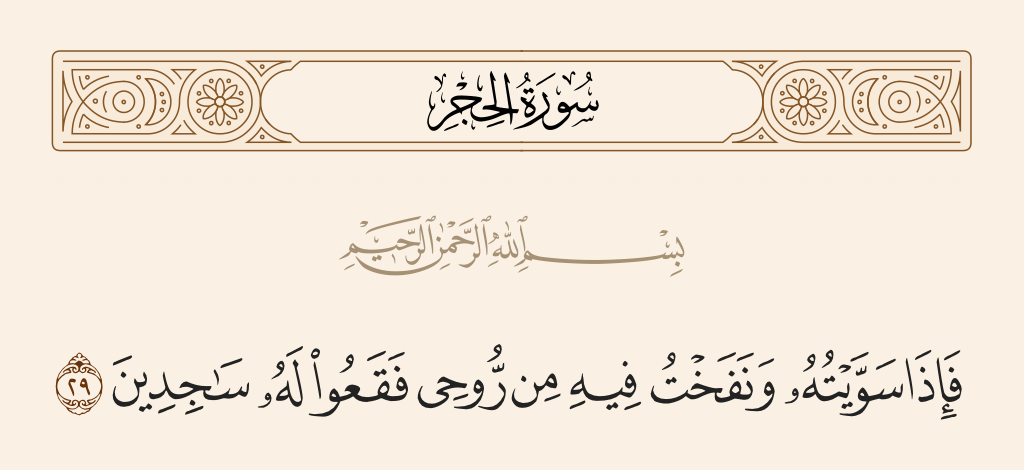 سُورَةُ الحِجْرِ
بِسْمِ ٱللَّهِ ٱلرَّحْمَٰنِ ٱلرَّحِيمِ
فَإِذَا سَوَّيْتُهُۥ وَنَفَخْتُ فِيهِ مِن رُّوحِى فَقَعُوا۟ لَهُۥ سَٰجِدِينَ ٢٩